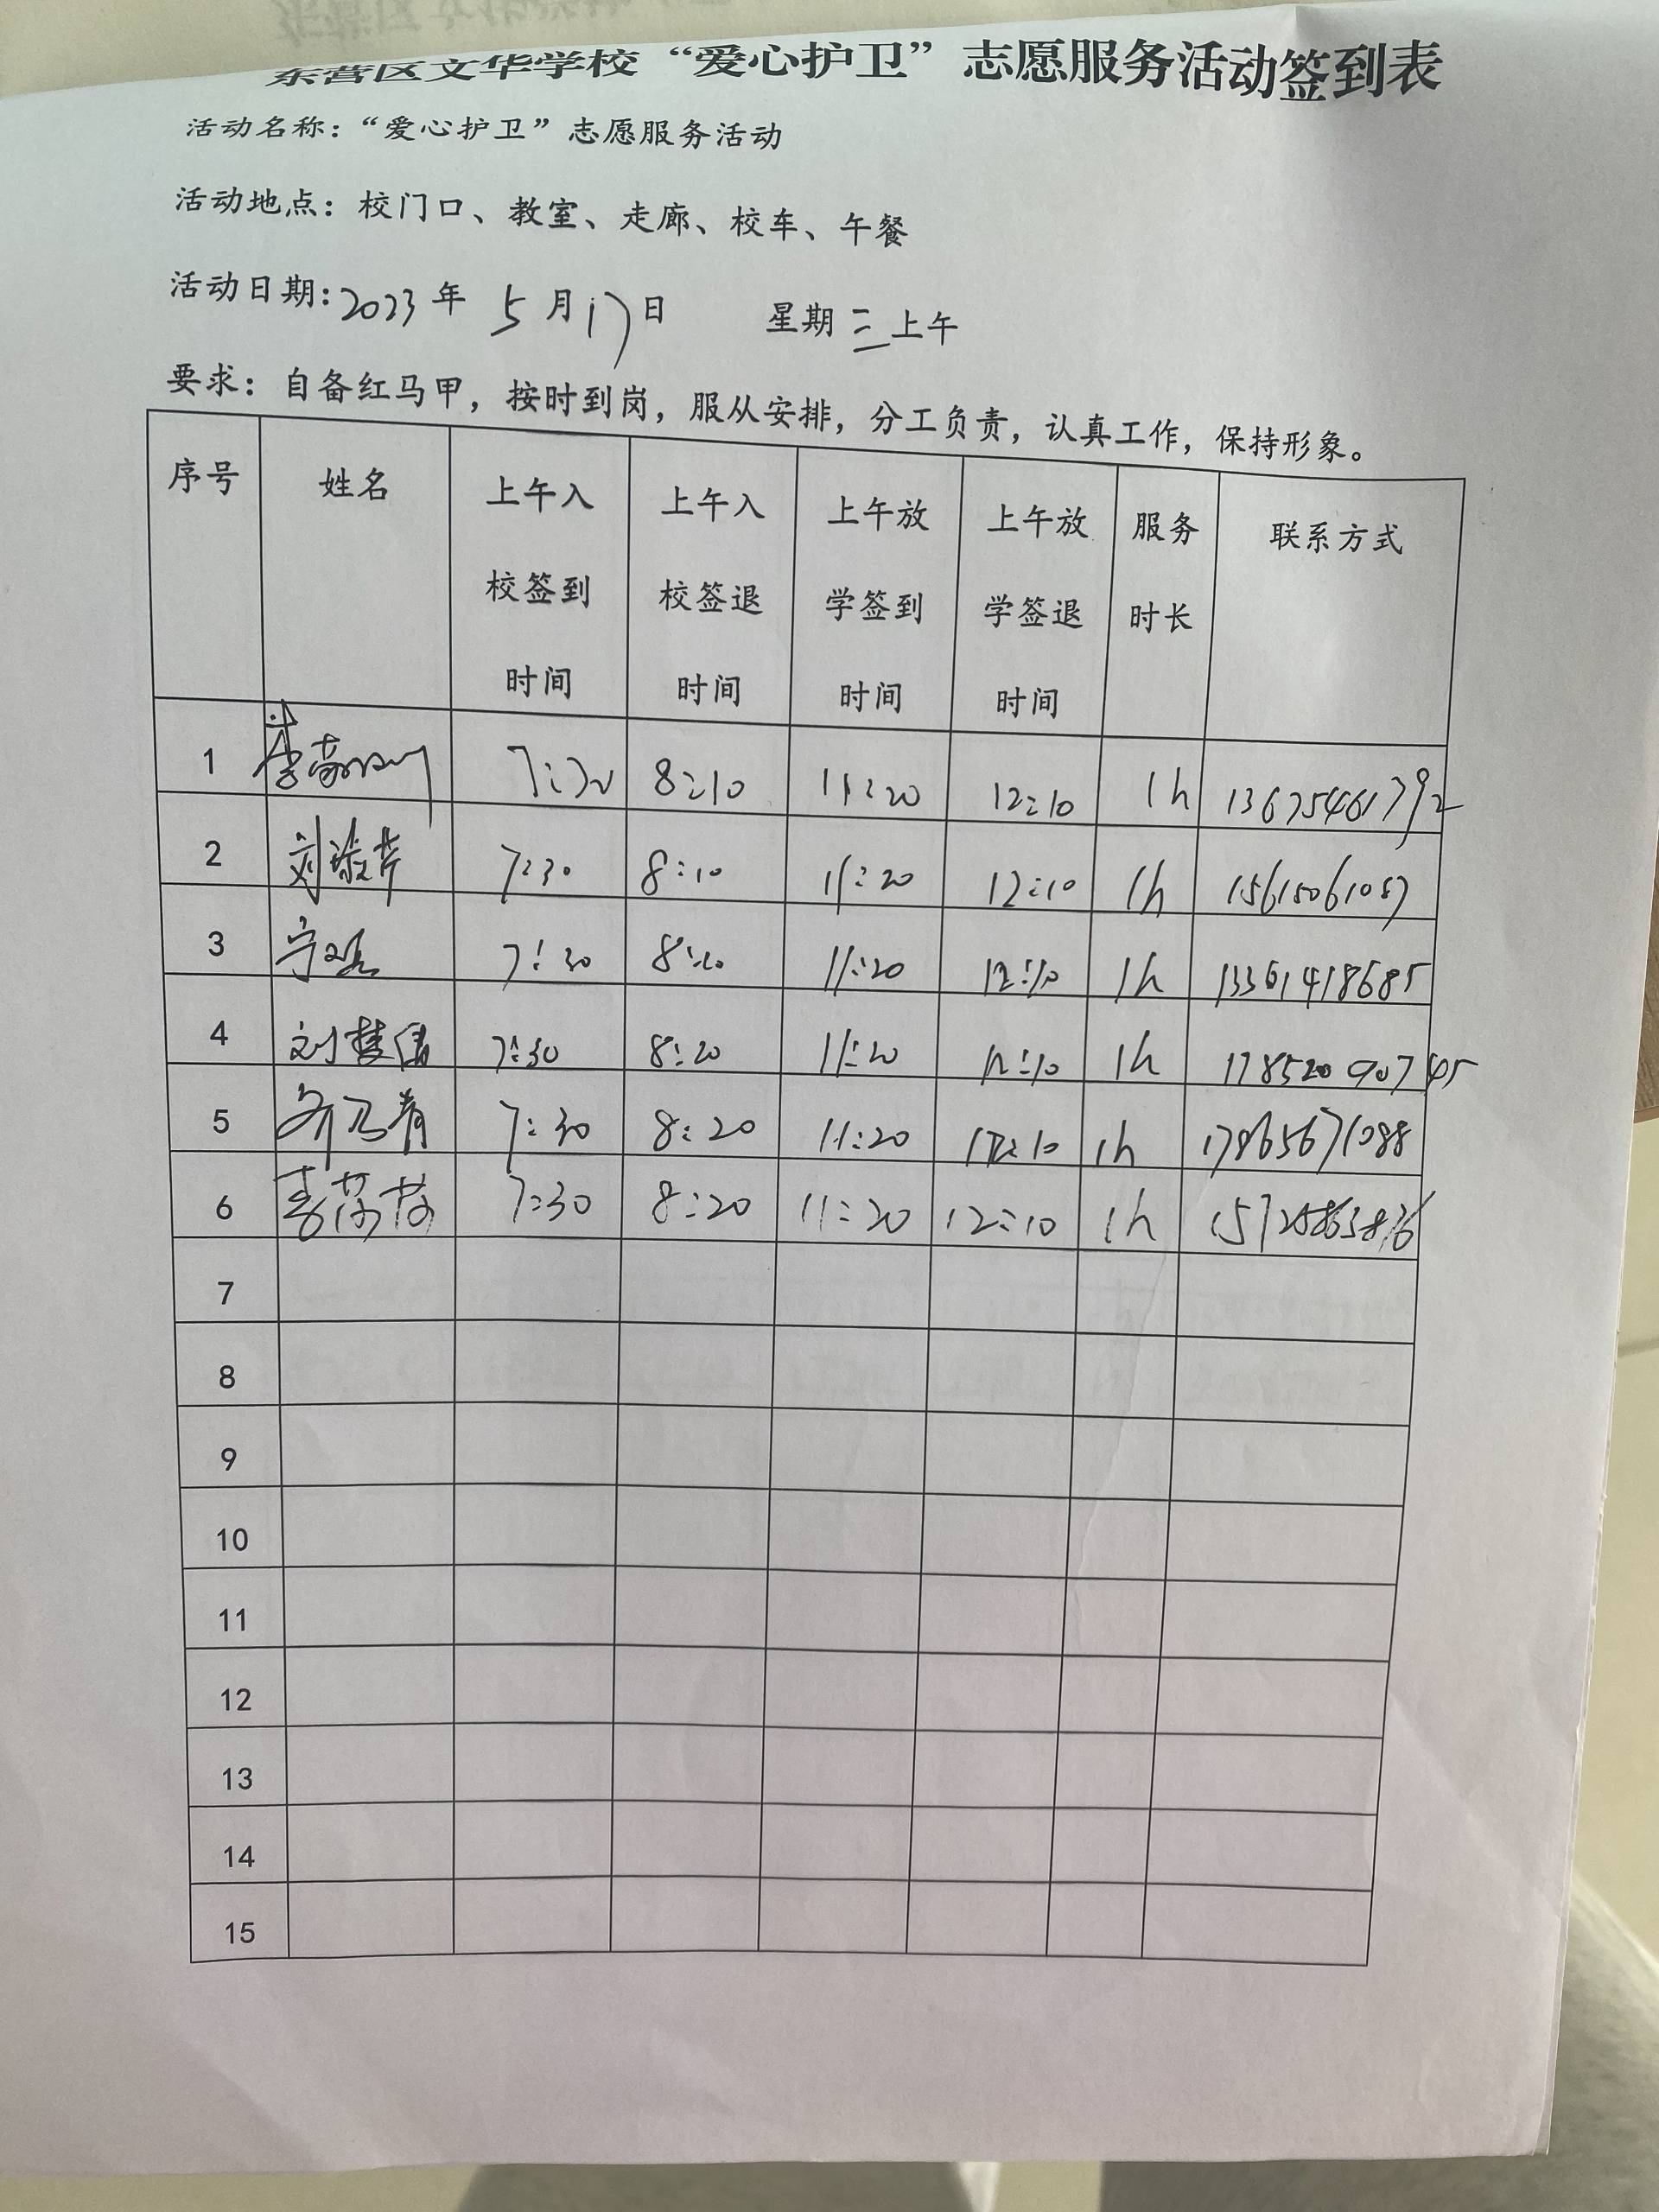 东营区文华学校“爱心护卫”志愿服务活动签到表
活动名称：“爱心护卫”志愿服务活动
活动地点：校门口、教室、走廊、校车、午餐
活动日期：2023年 5月17日 星期三上午
要求：自备红马甲，按时到岗，服从安排，分工负责，认真工作，保持形象。
序号 姓名 上午入校签到时间 上午入校签退时间 上午放学签到时间 上午放学签退时间 服务时长 联系方式
1 7:30 8:10 11:20 12:10 1h 13675461792
2 7:30 8:10 11:20 12:10 1h 15615061087
3 7:30 11:20 12:10 1h 13361418685
4 7:30 8:20 11:20 12:10 1h 17852090745
5 7:30 8:20 11:20 12:10 1h 17865671088
6 7:30 8:20 11:20 12:10 1h
7
8
9
10
11
12
13
14
15